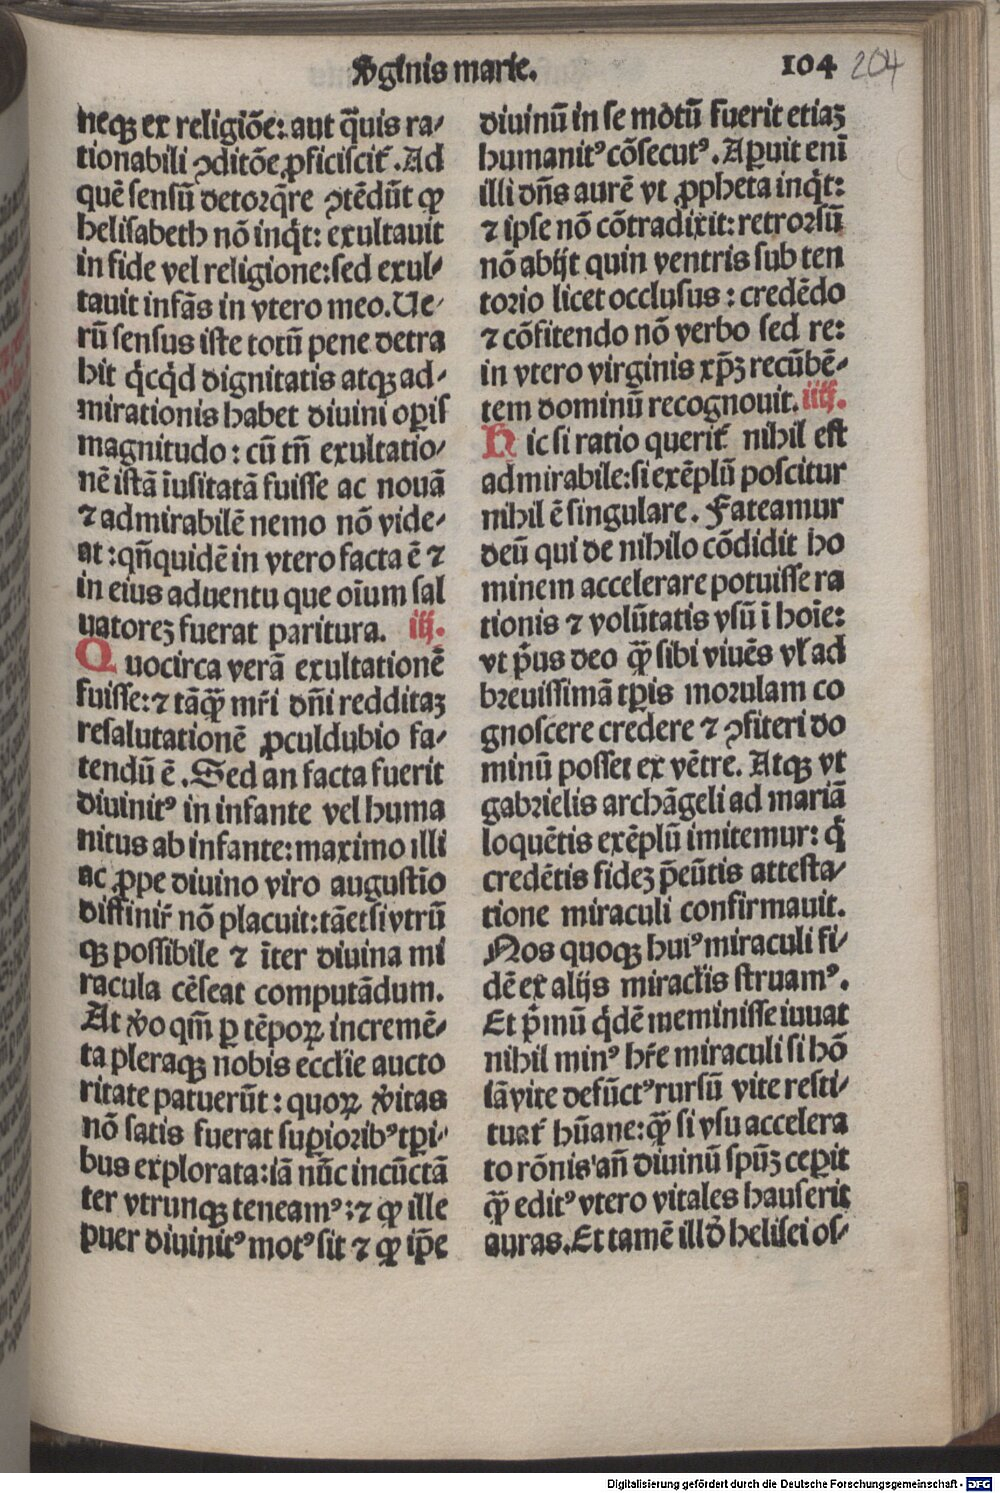 v̄ginis marie.
104
204
neqꝫ ex religiōe: aut q̄uis ra⸗
tionabili ꝯditōe ꝓficiscit᷑. Ad
quē sensū detorq̄re ꝯtēdūt ꝙ
helisabeth nō inq̇t: exultauit
in fide vel religione: sed exul⸗
tauit infās in vtero meo. Ue⸗
rū sensus iste totū pene detra
hit q̇cq̇d dignitatis atqꝫ ad⸗
mirationis habet diuini oꝑis
magnitudo: cū tn̄ exultatio⸗
nē istā īusitatā fuisse ac nouā
⁊ admirabilē nemo nō vide⸗
at: qn̄quidē in vtero facta ē ⁊
in eius aduentu que oīum sal
uatoreꝫ fuerat paritura. iij.
Quocirca verā exultationē
fuisse: ⁊ tāꝙ̄ mr̄i dn̄i redditaꝫ
resalutationē ꝓculdubio fa⸗
tendū ē. Sed an facta fuerit
diuinitꝰ in infante vel huma
nitus ab infante: maximo illi
ac ꝓpe diuino viro augustīo
diffinir̄ nō placuit: tāetsi vtrū
qꝫ possibile ⁊ īter diuina mi
racula cēseat computādum.
At v̄o qm̄ ꝑ tēpoꝝ incremē⸗
ta pleraqꝫ nobis eccl̄ie aucto
ritate patuerūt: quoꝝ v̄itas
nō satis fuerat suꝑioribꝰ tꝑi⸗
bus explorata: iā nūc incūctā
ter vtrunqꝫ teneamꝰ: ⁊ ꝙ ille
puer diuinitꝰ motꝰ sit ⁊ ꝙ ip̄e
diuinū in se mōtū fuerit etiaꝫ
humanitꝰ cōsecutꝰ. Aꝑuit enī
illi dn̄s aurē vt ꝓpheta inq̇t:
⁊ ipse nō cōtradixit: retrorsū
nō abijt quin ventris sub ten
torio licet occlusus: credēdo
⁊ cōfitendo nō verbo sed re:
in vtero virginis xp̄ꝫ recūbē⸗
tem dominū recognouit. iiij.
Hic si ratio querit᷑ nihil est
admirabile: si exēplū poscitur
nihil ē singulare. Fateamur
deū qui de nihilo cōdidit ho
minem accelerare potuisse ra
tionis ⁊ volūtatis vsū ī hoīe:
vt pͥus deo ꝙ̄ sibi viuēs vl̄ ad
breuissimā tꝑis morulam co
gnoscere credere ⁊ ꝯfiteri do
minū posset ex vētre. Atqꝫ vt
gabrielis archāgeli ad mariā
loquētis exēplū imitemur: q̇
credētis fideꝫ p̄eūtis attesta⸗
tione miraculi confirmauit.
Nos quoqꝫ huiꝰ miraculi fi⸗
dē ex alijs miracl̄is struamꝰ.
Et pͥmū q̇dē meminisse iuuat
nihil minꝰ hr̄e miraculi si hō
iā vite defūctꝰ rursū vite resti⸗
tuat᷑ hūane: ꝙ̄ si vsu accelera
to rōnis an̄ diuinū spūꝫ ceꝑit
ꝙ̄ editꝰ vtero vitales hauserit
auras. Et tamē illō helisei os⸗
Digitalisierung gefördert durch die Deutsche Forschungsgemeinschaft - DFG